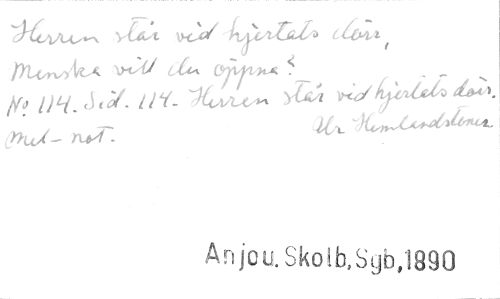 Herren står vid hjertats dörr,
Menska vill du öppna?
No 114. Sid. 114. Herren står vid hjertats dörr.
Mel-not. Ur Hemlandstoner
Anjou. Skolb, Sgb, 1890